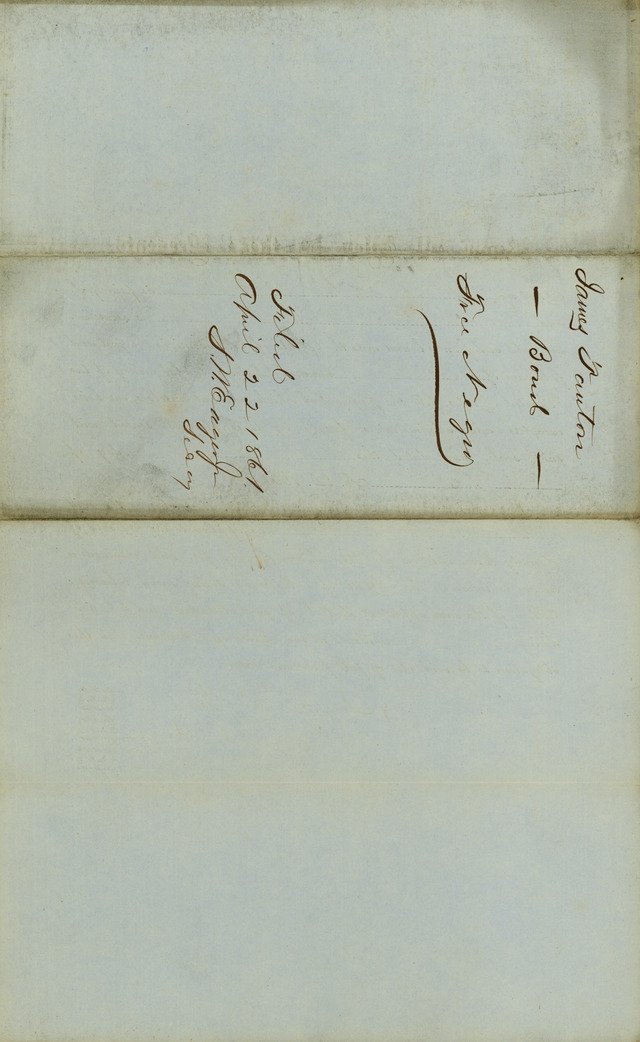 James Tanton
— Bond —
Free Negro
Filed
April 22 1861